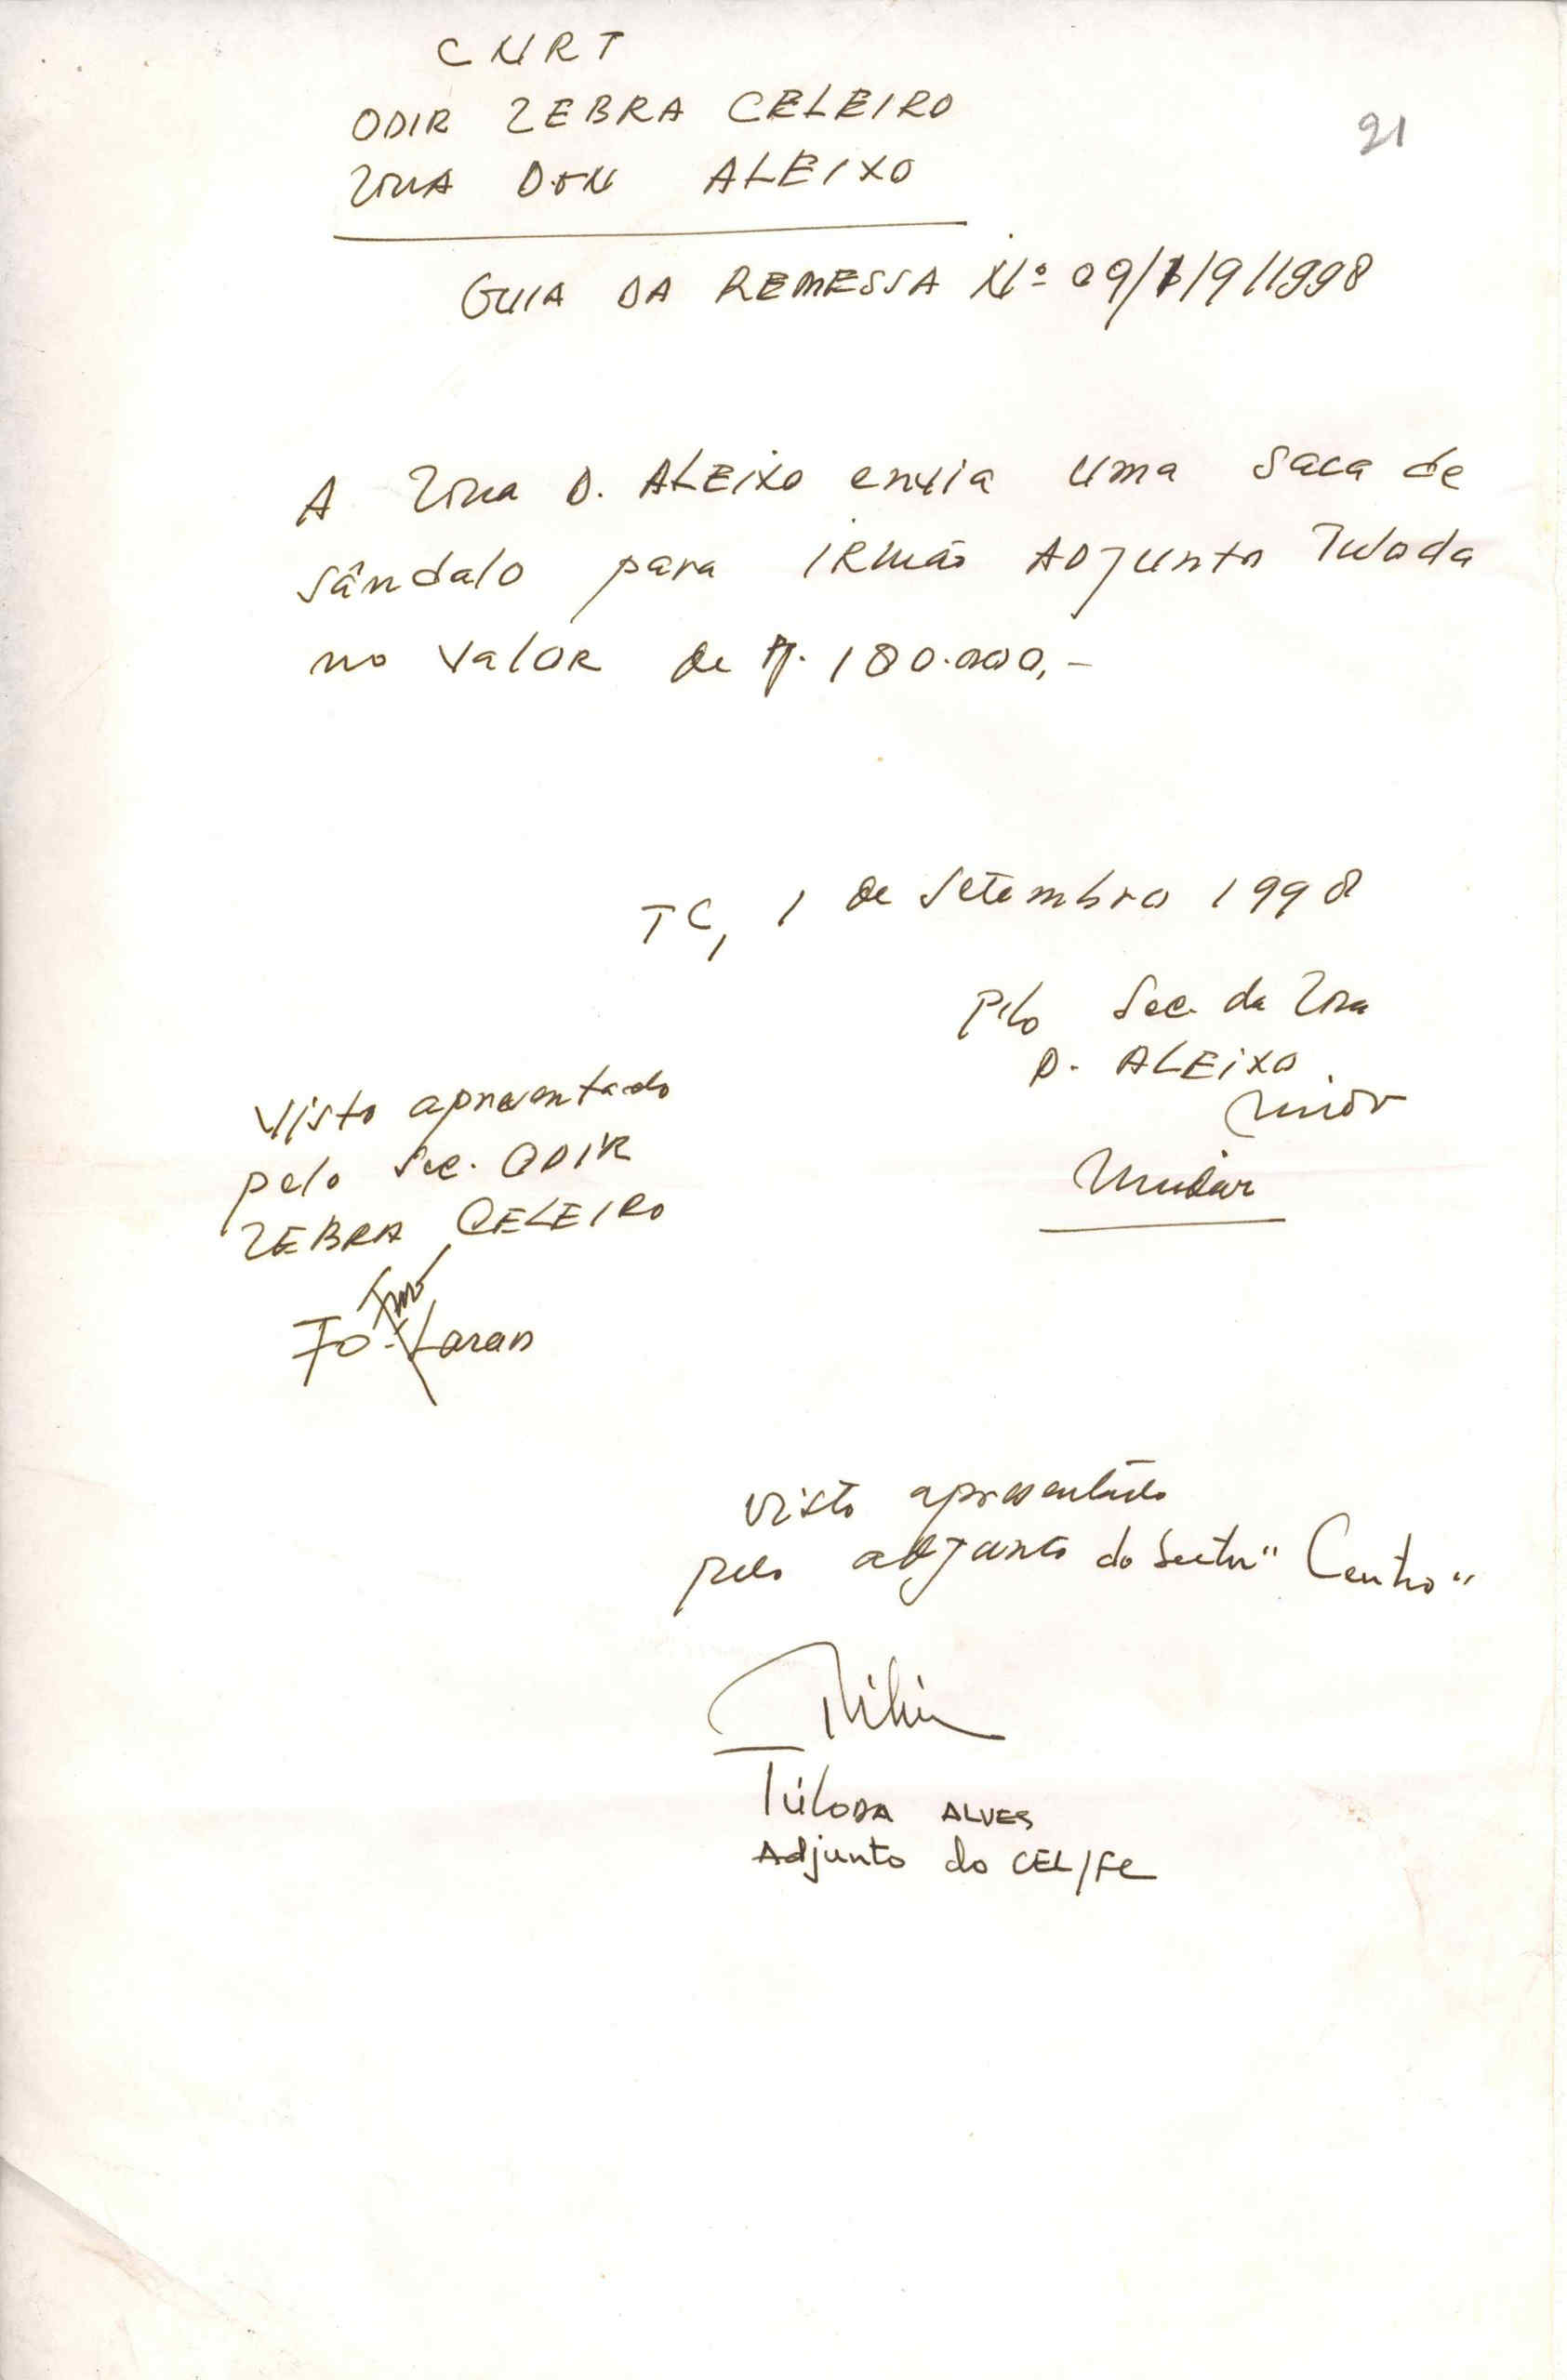 CNRT
ODIR ZEBRA CELEIRO
21
ZONA DON ALEIXO
GUIA DA REMESSA Nº 09/1/9/1998
A Zona D. ALEIXO envia uma saca de
sândalo para IRMÃO ADJUNTO Tuloda
no valor de Rp. 180.000,-
TC, 1 de Setembro 1998
Pelo Sec. da Zona
D. ALEIXO
Visto apresentado
pelo Sec. ODIR
ZEBRA CELEIRO
Fo-Laran
Visto apresentado
pelo adjunto do Sector "Centro"
Túloda ALVES
Adjunto do CEL/FC